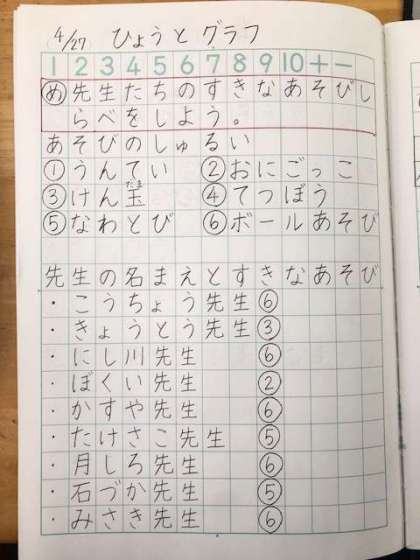 4/27 ひょうとグラフ
1 2 3 4 5 6 7 8 9 10 + −
め 先生たちのすきなあそびし
らべをしよう。
あそびのしゅるい
①うんてい ②おにごっこ
③けん玉たま ④てつぼう
⑤なわとび ⑥ボールあそび
先生の名まえとすきなあそび
・こうちょう先生⑥
・きょうとう先生③
・にし川先生 ⑥
・ぼくい先生 ②
・かすや先生 ⑥
・たけさこ先生 ⑤
・月しろ先生 ⑥
・石づか先生 ⑤
・みさき先生 ⑥